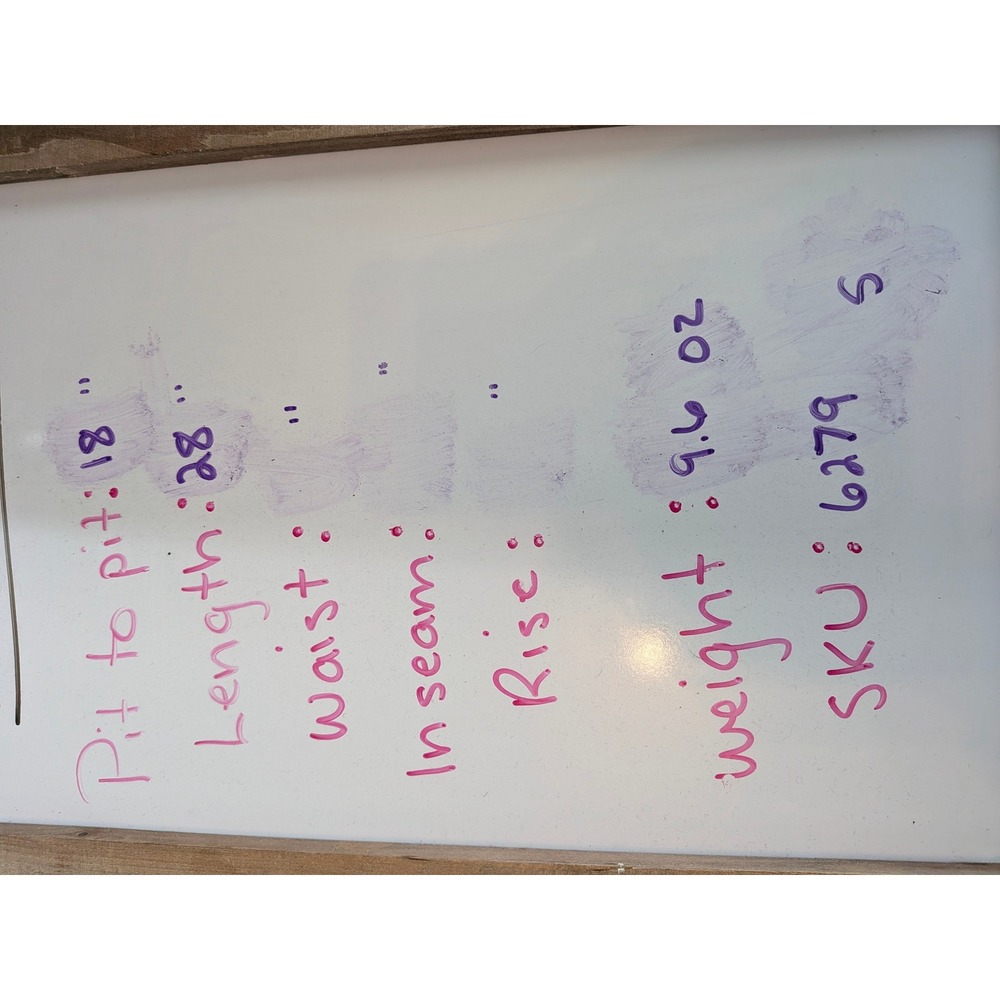 Pit to pit: 18"
Length: 28"
Waist: "
Inseam: "
Rise: "
Weight: 9.6 oz
SKU: 6279 S